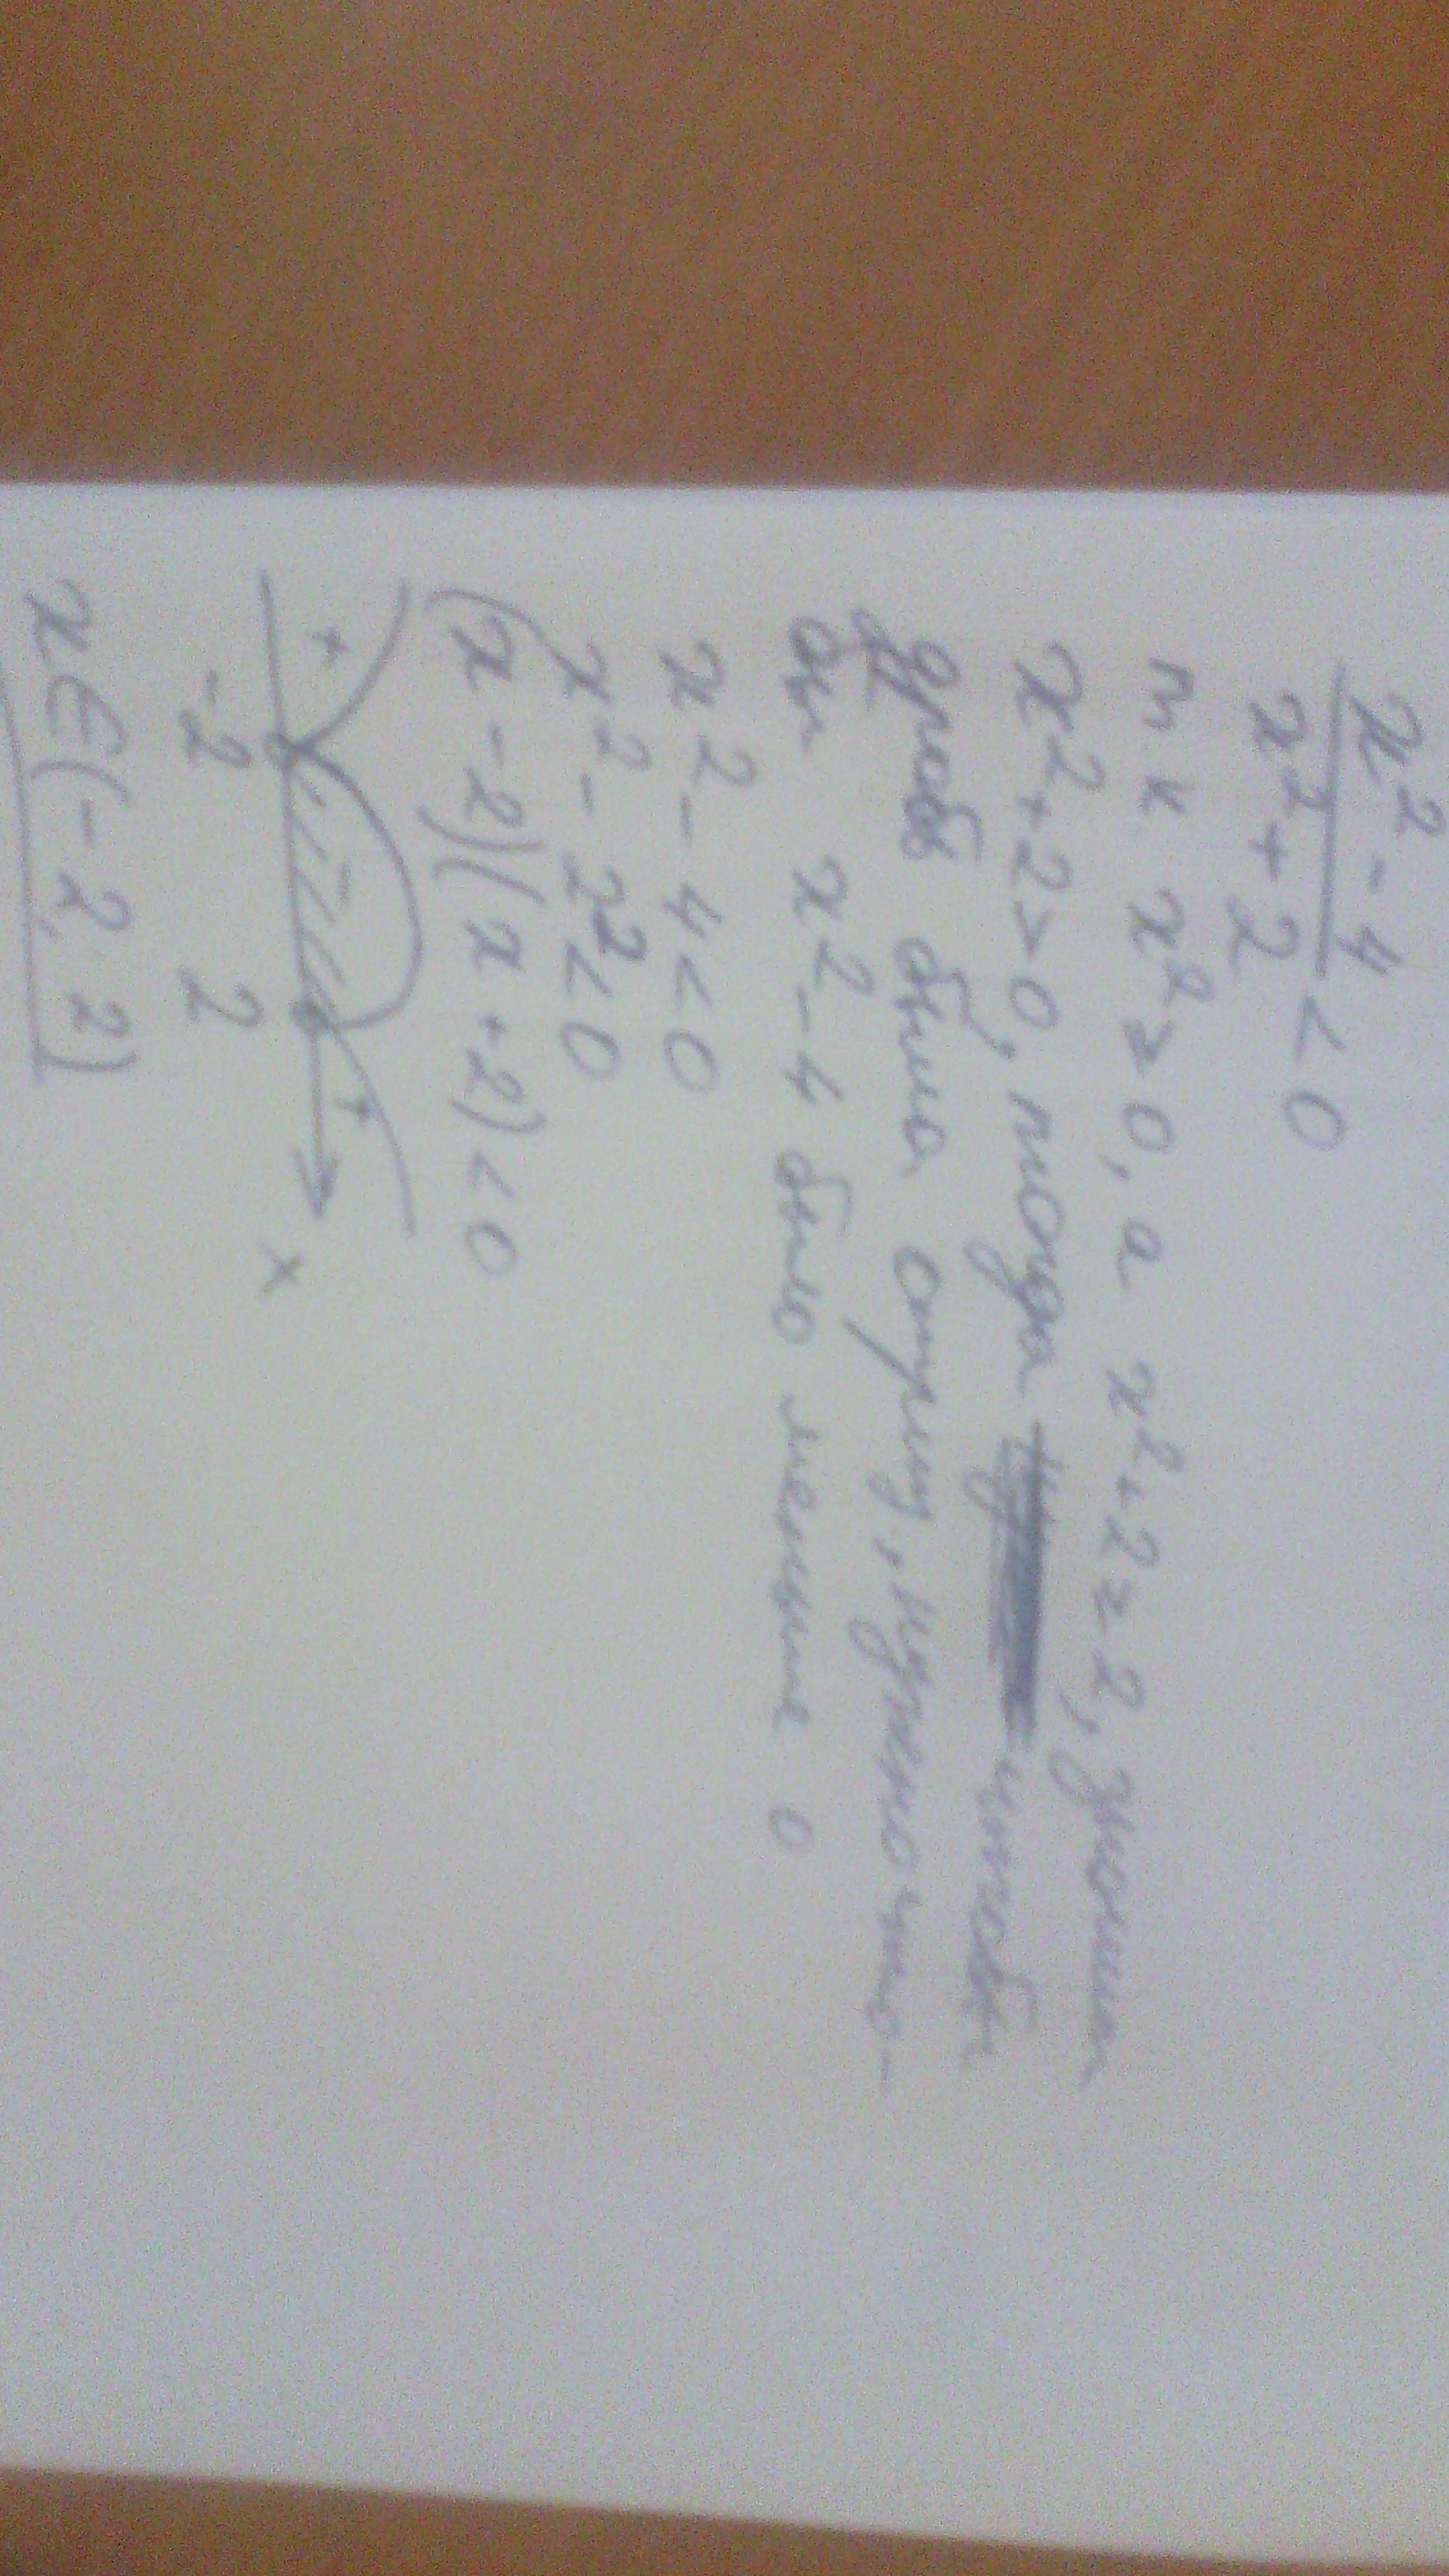 x² - 4
x² + 2 < 0
т к x² ≥ 0, а x² + 2 ≥ 2, значит
x² + 2 > 0, тогда чтобы
дробь была отриц, нужно что-
бы x² - 4 было меньше 0
x² - 4 < 0
x² - 2² < 0
(x - 2)(x + 2) < 0
+ - +
-2 2 x
x ∈ (-2; 2)